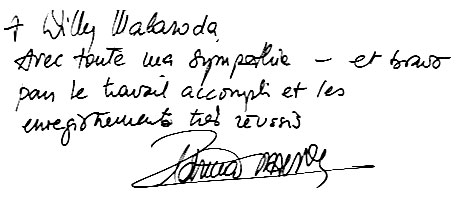 A Willy Wabanoda
Avec toute ma sympathie – et bravo
pour le travail accompli et les
enregistrements très réussis